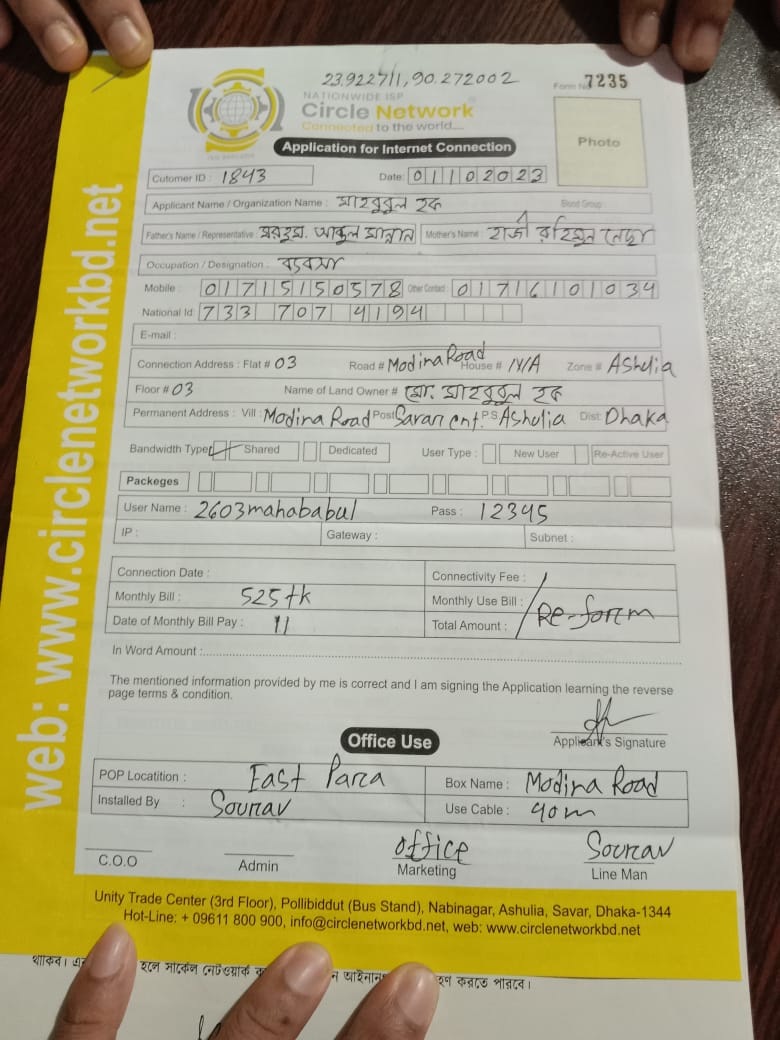 23.922711, 90.272002
Form No 7235
NATIONWIDE ISP
Circle Network
Connected to the world....
Photo
Application for Internet Connection
Cutomer ID : 1843 Date: 01102023
Applicant Name / Organization Name : মাহবুবুল হক Blood Group :
Father's Name / Representative : মরহুম. আব্দুল মান্নান Mother's Name : হাজী রহিমুন নেছা
Occupation / Designation : ব্যবসা
Mobile : 01715150578 Other Contact : 01716101034
National Id: 733 707 4194
E-mail :
Connection Address : Flat # 03 Road # Modina Road House # Zone # Ashulia
Floor # 03 Name of Land Owner # মো. মাহবুবুল হক
Permanent Address : Vill : Modina Road Post Savar cnt. P.S Ashulia Dist: Dhaka
Bandwidth Type Shared Dedicated User Type : New User Re-Active User
Packeges
User Name : 2603mahababul Pass : 12345
IP : Gateway : Subnet :
Connection Date : Connectivity Fee :
Monthly Bill : 525 tk Monthly Use Bill :
Date of Monthly Bill Pay : 11 Total Amount : Re-form
In Word Amount :
The mentioned information provided by me is correct and I am signing the Application learning the reverse
page terms & condition.
Applicant's Signature
Office Use
POP Locatition : East Para Box Name : Modina Road
Installed By : Sourav Use Cable : 40m
C.O.O Admin office Marketing Sourav Line Man
Unity Trade Center (3rd Floor), Pollibiddut (Bus Stand), Nabinagar, Ashulia, Savar, Dhaka-1344
Hot-Line: + 09611 800 900, info@circlenetworkbd.net, web: www.circlenetworkbd.net
web: www.circlenetworkbd.net
থাকিব। হলে সার্কেল নেটওয়ার্ক করতে পারবে।